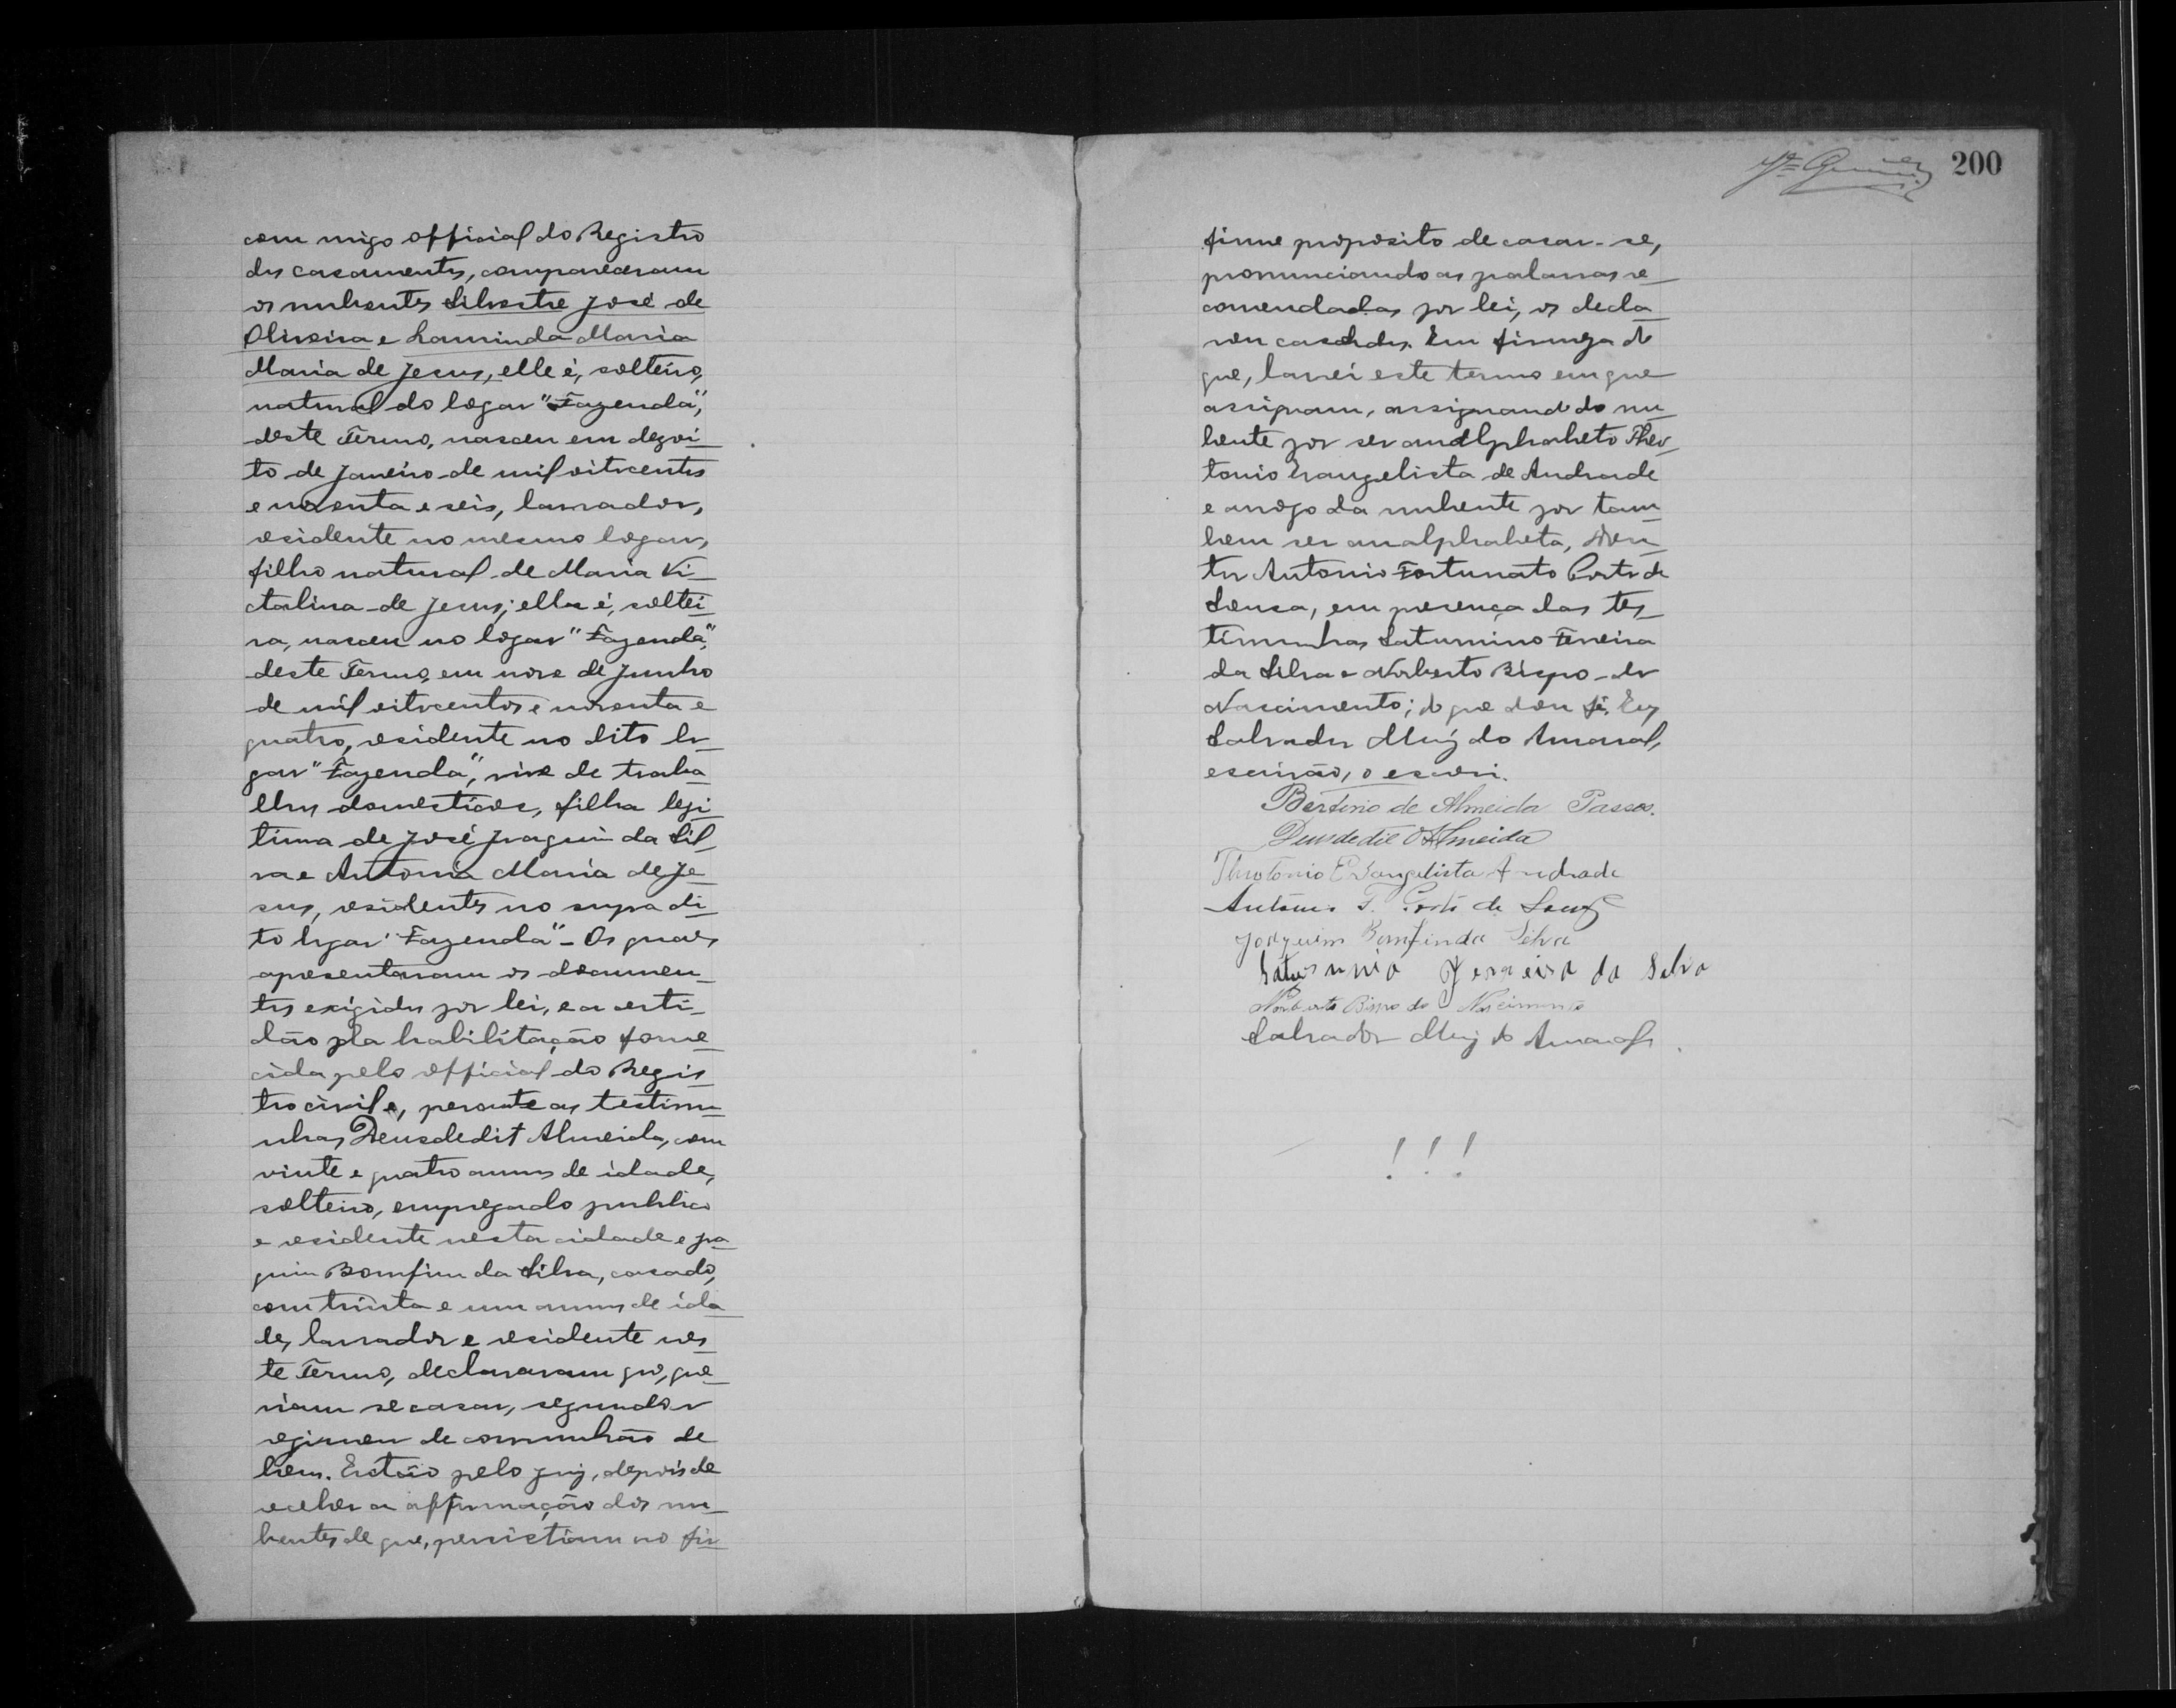 com migo official do Registro
dos casamentos, compareceram
os nubentes Silvestre José de
Oliveira e Laurinda Maria
Maria de Jesus, elle é, solteiro,
natural do logar "Fazenda",
deste Termo, nasceu em dezoi_
to de Janeiro de mil oitocentos
e noventa e seis, lavrador,
residente no mesmo logar,
filho natural de Maria Vi_
ctalina de Jesus; ella é, soltei_
ra, nasceu no logar "Fazenda",
deste Termo, em nove de Junho
de mil oitocentos e noventa e
quatro, residente no dito lo_
gar "Fazenda", vive de traba_
lhos domesticos, filha legi_
tima de José Joaquim da Sil_
va e Antonia Maria de Je_
sus, residentes no supra di_
to logar "Fazenda" - Os quaes
apresentaram os documen_
tos exigidos por lei, e a certi_
dão da habilitação forne_
cida pelo official do Regis_
tro civil e, perante as testimu_
nhas Deusdedit Almeida, com
vinte e quatro annos de idade,
solteiro, empregado publico
e residente nesta cidade e Joa_
quim Bomfim da Silva, casado,
com trinta e um annos de ida_
de, lavrador e residente nes_
te Termo, declararam que, que_
riam se casar, segundo o
regimen de communhão de
bens. Então pelo juiz, depois de
receber a affirmação dos nu_
bentes de que, persistiam no fir_
200
firme proposito de casar-se,
pronunciando as palavras re_
comendadas por lei, os decla_
rou casados. Em firmeza do
que, lavrei este termo em que
assignam, assignando do nu_
bente por ser analphabeto Theo_
tonio Evangelista de Andrade
e a rogo da nubente por tam_
bem ser analphabeta, Dou_
tor Antonio Fortunato Porto de
Sousa, em presença das tes_
timunhas Saturnino Ferreira
da Silva e Norberto Bispo do
Nascimento; do que dou fé. Eu,
Salvador Muiz do Amaral,
escrivão, o escrevi.
Bertino de Almeida Passos.
Deusdedit d'Almeida
Theotonio Evangelista Andrade
Antonio F. Porto de Souza
Joaquim Bomfim da Silva
Saturnino Ferreira da Silva
Norberto Bispo do Nascimento
Salvador Muiz do Amaral
! ! !